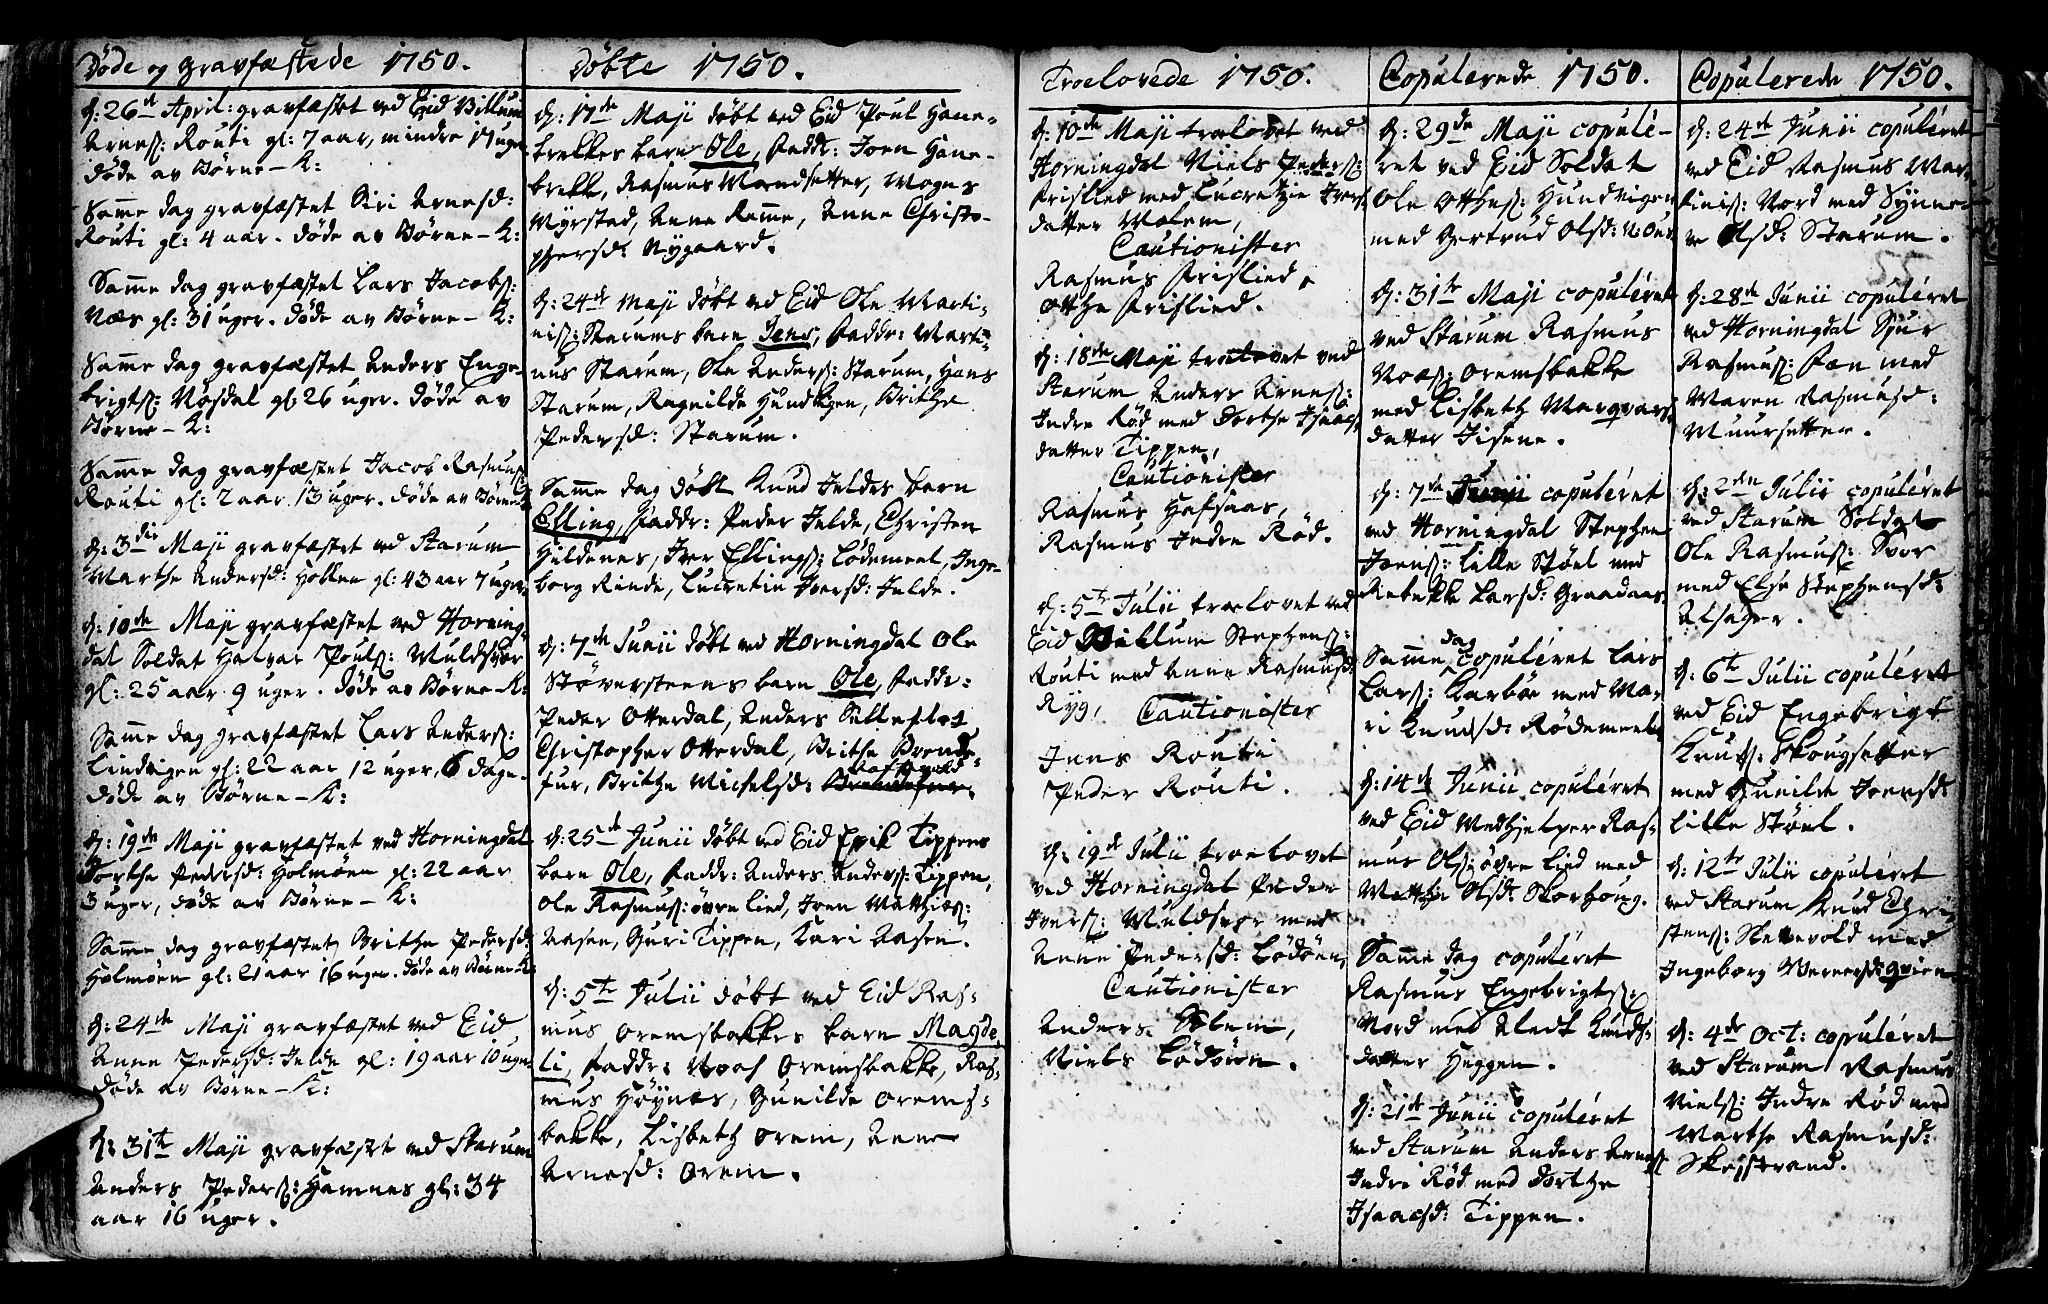 Døde og gravfæstede 1750.
d: 26de April: gravfæstet ved Eid Villum
Arnes: Routi gl: 7 aar, mindre 17 uger
døde av Børne-K:
Samme dag gravfæstet Siri Arnesd:
Routi gl: 4 aar. døde av Børne-K:
Samme dag gravfæstet Lars Jacobs:
Næs gl: 31 uger. døde av Børne-K:
Samme dag gravfæstet Anders Enge-
brigts: Nøsdal gl: 26 uger. døde av
Børne-K:
Samme dag gravfæstet Jacob Rasmus:
Routi gl: 2 aar 13 uger. døde av Børne-K
d: 3die Maji gravfæstet ved Starum
Marthe Andersd: Hollen gl: 43 aar 7 uger
d: 10de Maji gravfæstet ved Horning-
dal Soldat Halvar Pouls: Muldsvor
gl: 25 aar 9 uger. døde av Børne-K:
Samme dag gravfæstet Lars Anders:
Lindvigen gl: 22 aar 12 uger, 6 dage.
døde av Børne-K:
d: 19de Maji gravfæstet ved Horningdal
Dorthe Pedersd: Holmøen gl: 22 aar
3 uger, døde av Børne-K:
Samme dag gravfæstet Brithe Pedersd:
Holmøen gl: 21 aar 16 uger. døde av Børne-K:
d: 24de Maji gravfæstet ved Eid
Anne Pedersd: Jelde gl: 19 aar 10 uger
døde av Børne-K:
d: 31te Maji gravfæstet ved Starum
Anders Peders: Hamnes gl: 34
aar 16 uger.
Døbte 1750.
d: 17de Maji døbt ved Eid Poul Hane-
brekkes barn Ole, Faddr: Joen Hane-
brekk, Rasmus Mandsetter, Mogns
Myrstad, Anne Ramme, Anne Christo-
phersd: Nygaard.
d: 24de Maji døbt ved Eid Ole Marti-
nis: Starums barn Jens, Faddr: Marti-
nus Starum, Ole Anders: Starum, Hans
Starum, Ragnilde Hundvigen, Brithe
Pedersd: Starum.
Samme dag døbt Knud Jeldes barn
Elling, Faddr: Peder Jelde, Christen
Hildenes, Iver Ellings: Lødemeel, Inge-
borg Rinde, Lucretia Iversd: Jelde.
d: 7de Junii døbt ved Horningdal Ole
Støversteens barn Ole, Faddr:
Peder Otterdal, Anders Selleflot
Christopher Otterdal, Brithe Brende-
fur, Brithe Michelsd:
d: 25de Junii døbt ved Eid Erik Tippens
barn Ole, Faddr: Anders Anders: Tippen,
Ole Rasmus: øvre Lied, Iven Matthias:
Aasen, Guri Tippen, Kari Aasen.
d: 5te Julii døbt ved Eid Ras-
mus Oremsbakkes barn Magde-
li, Faddr: Noas Oremsbakke, Ras-
mus Høynes, Gunilde Orems-
bakke, Lisbeth Orem, Anne
Arnesd: Orem.
Troelovede 1750.
d: 10de Maji troelovet ved
Horningdal Niels Peders:
Frislied med Lucretzie Ivers
datter Mælem,
Cautionister
Rasmus Frislied,
Otthe Frislied.
d: 18de Maji troelovet ved
Starum Anders Arnes:
Indre Rød med Dorthe Isaacs
datter Tippen,
Cautionister
Rasmus Hafsaas,
Rasmus Indre Rød.
d: 5te Julii troelovet ved
Eid Villum Stephens:
Routi med Anne Rasmusd:
Ryg, Cautionister
Jens Routi
Peder Routi.
d: 19de Julii troelovet
ved Horningdal Peder
Ivers: Muldsvor med
Anne Pedersd: Lødøen,
Cautionister
Anders Solem,
Niels Lødøen.
Copulerede 1750.
d: 29de Maji copule-
ret ved Eid Soldat
Ole Otthes: Hundvigen
med Gertrud Olsd:
d: 31te Maji copuléret
ved Starum Rasmus
Noas: Oremsbakke
med Lisbeth Marqvars
datter Jisene.
d: 7de Junii copuléret
ved Horningdal Stephen
Joens: Lille Støel med
Rebekke Larsd: Graadaas.
Samme dag copuléret Lars
Lars: Karbøe med Ma-
ri Knudsd: Rødemeel.
d: 14de Junii copuléret
ved Eid Medhjelper Ras-
mus Ols: øvre Lied med
Matthe Olsd: Skorhoug.
Samme dag copuléret
Rasmus Engebrigts:
Nord med Aledt Knuds-
datter Heggen.
d: 21de Junii copuléret
ved Starum Anders Arnes:
Indre Rød med Dorthe
Isaacsd: Tippen.
Copulerede 1750.
d: 24de Junii copuléret
ved Eid Rasmus Mar-
tinis: Nord med Synne-
ve Olsd: Starum.
55
d: 28de Junii copuléret
ved Horningdal Siur
Rasmus: Fæn med
Maren Rasmusd:
Muursetter.
d: 2den Julii copuléret
ved Starum Soldat
Ole Rasmus: Svor
med Else Stephensd:
Alsager.
d: 6te Julii copuléret
ved Eid Engebrigt
Knuts: Skougsetter
med Gunilde Joensd:
Lille Støel.
d: 12te Julii copuléret
ved Starum Knud Chri-
stens: Skevevold med
Ingeborg
d: 4de Oct: copuléret
ved Starum Rasmus
Niels: Indre Rød med
Marthe Rasmusd:
Skejstrand.